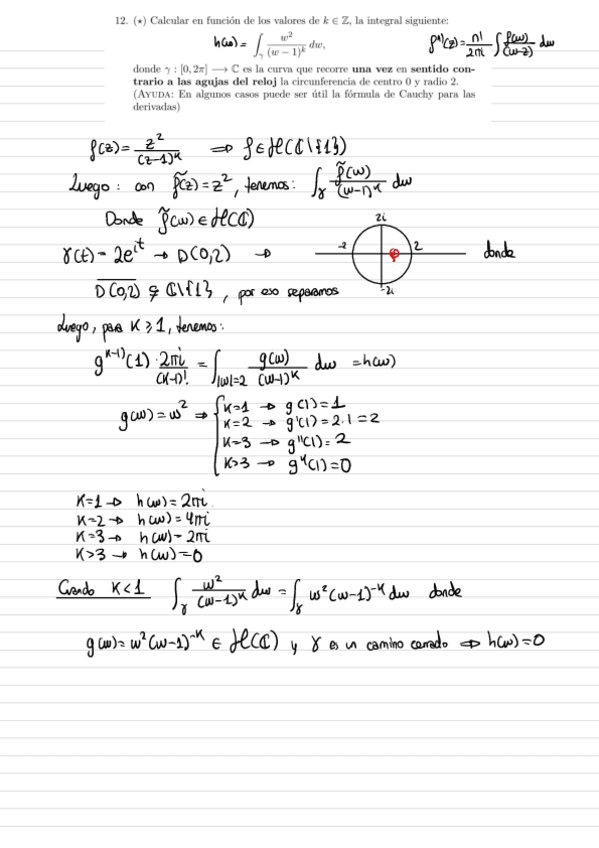 12. (⋆) Calcular en función de los valores de k ∈ ℤ, la integral siguiente:
h(w) = ∫_γ w²/(w − 1)^k dw,
f^(n)(z) = n!/2πi ∫ f(w)/(w-z) dw
donde γ : [0, 2π] ⟶ ℂ es la curva que recorre una vez en sentido con-
trario a las agujas del reloj la circunferencia de centro 0 y radio 2.
(AYUDA: En algunos casos puede ser útil la fórmula de Cauchy para las
derivadas)
f(z) = z²/(z-1)^k ⇒ f ∈ H(ℂ\{1})
Luego: con f̃(z) = z², tenemos: ∫_γ f̃(w)/(w-1)^k dw
Donde f̃(w) ∈ H(ℂ)
γ(t) = 2e^it → D(0,2) → -2 2 2i -2i donde
D(0,2) ⊊ ℂ\{1}, por eso separamos
Luego, para K ⩾ 1, tenemos:
g^(K-1)(1) · 2πi/(K-1)! = ∫_|w|=2 g(w)/(w-1)^K dw = h(w)
g(w) = w² ⇒ { K=1 → g(1) = 1
K=2 → g'(1) = 2·1 = 2
K=3 → g''(1) = 2
K>3 → g^k(1) = 0
K=1 → h(w) = 2πi
K=2 → h(w) = 4πi
K=3 → h(w) = 2πi
K>3 → h(w) = 0
Cuando K<1 ∫_γ w²/(w-1)^K dw = ∫_γ w²(w-1)^-K dw donde
g(w) = w²(w-1)^-K ∈ H(ℂ) y γ es un camino cerrado ⇒ h(w) = 0